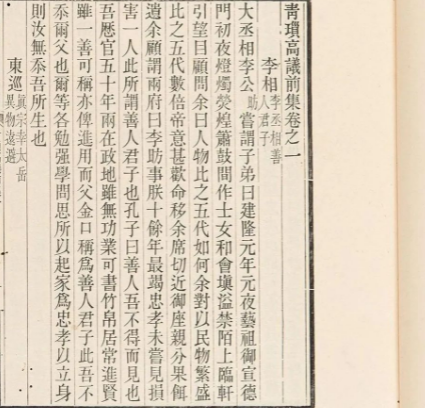 青瑣高議前集卷之一
李相 李丞相善人君子
大丞相李公昉嘗謂子弟曰建隆元年元夜藝祖御宣德
門初夜燈燭熒煌簫鼓間作士女和會塡溢禁陌上臨軒
引望目顧問余曰人物比之五代如何余對以民物繁盛
比之五代數倍帝意甚歡命移余席切近御座親分果餌
遺余顧謂兩府曰李昉事朕十餘年最竭忠孝未嘗見損
害一人此所謂善人君子也孔子曰善人吾不得而見也
吾歷官五十年兩在政地雖無功業可書竹帛居常進賢
雖一善可稱亦俾進用而父金口稱爲善人君子此吾不
忝爾父也爾等各勉强學問思所以起家爲忠孝以立身
則汝無忝吾所生也
東巡 眞宗幸太岳異物遠避